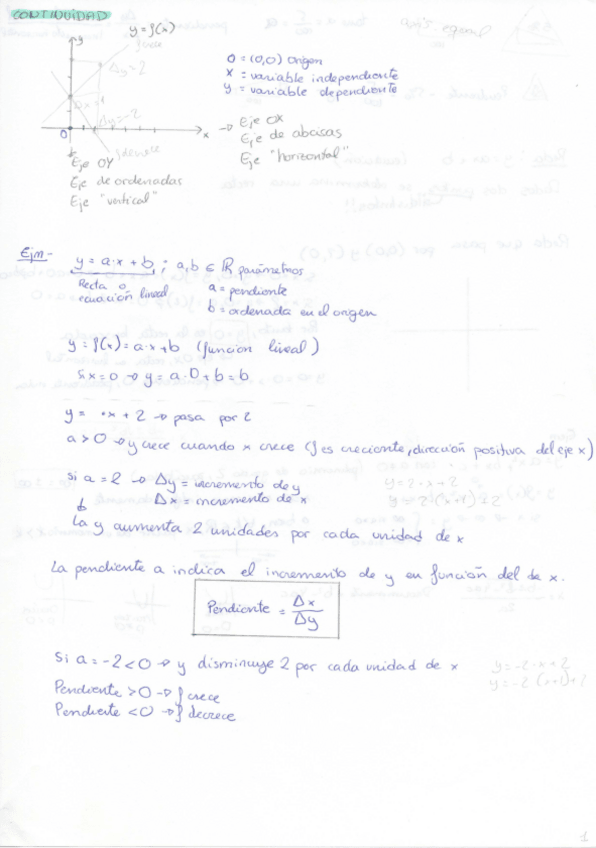 CONTINUIDAD
y = f(x)
y
f crece
Δy = 2
Δx = 1
Δy = -2
f decrece
0
x
0 = (0,0) Origen
x = variable independiente
y = variable dependiente
→ Eje OX
Eje de abcisas
Eje "horizontal"
Eje OY
Eje de ordenadas
Eje "vertical"
Ejm-
y = a·x + b ; a,b ∈ ℝ parámetros
Recta o
ecuación lineal
a = pendiente
b = ordenada en el origen
y = f(x) = a·x + b (función lineal)
Si x = 0 → y = a·0 + b = b
y = ·x + 2 → pasa por 2
a > 0 → y crece cuando x crece (f es creciente, dirección positiva del eje x)
Si a = 2 → Δy = incremento de y
Δx = incremento de x
y = 2·x + 2
y = 2(x+1)+2
La y aumenta 2 unidades por cada unidad de x
La pendiente a indica el incremento de y en función del de x.
Pendiente = Δx/Δy
Si a = -2 < 0 → y disminuye 2 por cada unidad de x
y = -2·x + 2
y = -2(x+1)+2
Pendiente > 0 → f crece
Pendiente < 0 → f decrece
1